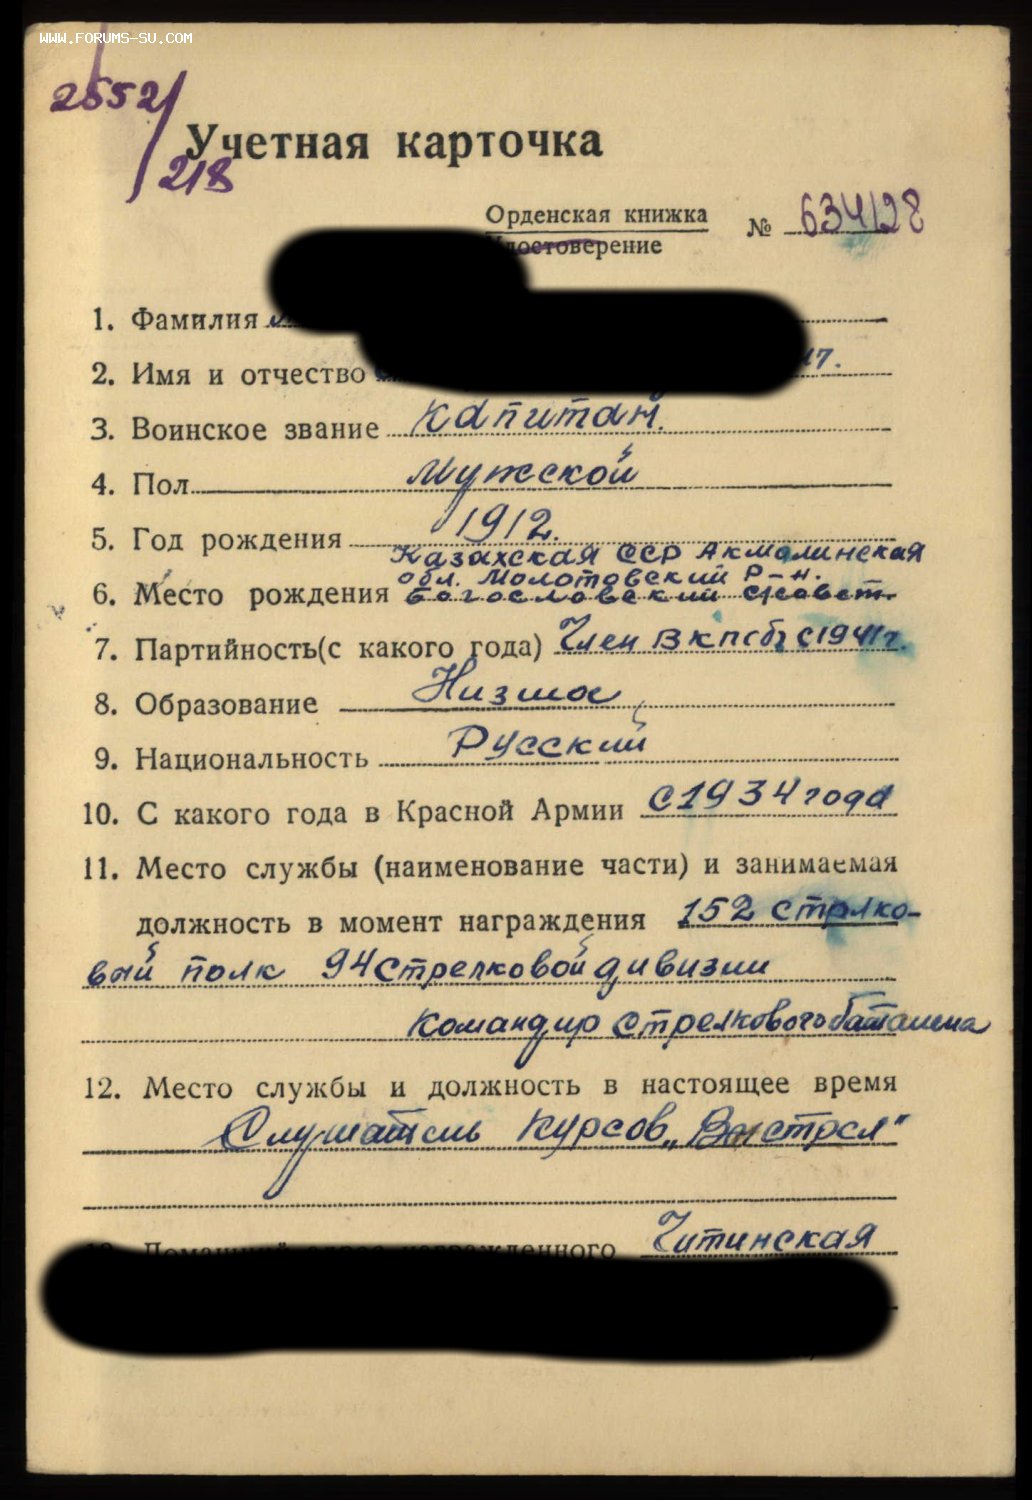 WWW.FORUMS-SU.COM
2552/
218
Учетная карточка
Орденская книжка № 634128
Удостоверение
1. Фамилия
2. Имя и отчество
3. Воинское звание Капитан.
4. Пол Мужской
5. Год рождения 1912.
Казахская ССР Акмолинская
обл. Молотовский р-н.
6. Место рождения Богословский с/совет
7. Партийность(с какого года) Член ВКП(б) с 1941 г.
8. Образование Низшое
9. Национальность Русский
10. С какого года в Красной Армии с 1934 года
11. Место службы (наименование части) и занимаемая
должность в момент награждения 152 стрелко-
вый полк 94 стрелковой дивизии
Командир стрелкового баталиона
12. Место службы и должность в настоящее время
Слушатель Курсов „Выстрел"
награжденного Читинская